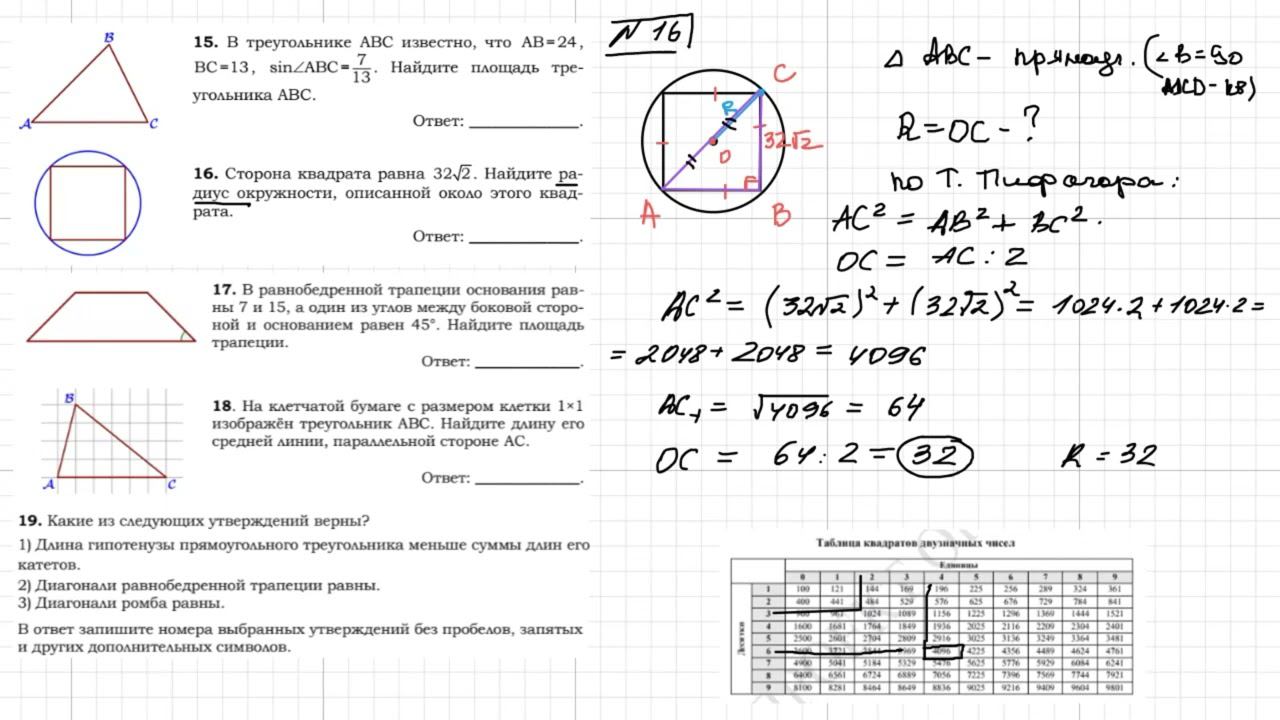 B
A
C
15. В треугольнике ABC известно, что AB=24,
BC=13, sin∠ABC=7/13. Найдите площадь тре-
угольника ABC.
Ответ: ____________.
16. Сторона квадрата равна 32√2. Найдите ра-
диус окружности, описанной около этого квад-
рата.
Ответ: ____________.
17. В равнобедренной трапеции основания рав-
ны 7 и 15, а один из углов между боковой сторо-
ной и основанием равен 45°. Найдите площадь
трапеции.
Ответ: ____________.
B
A
C
18. На клетчатой бумаге с размером клетки 1×1
изображён треугольник ABC. Найдите длину его
средней линии, параллельной стороне AC.
Ответ: ____________.
19. Какие из следующих утверждений верны?
1) Длина гипотенузы прямоугольного треугольника меньше суммы длин его
катетов.
2) Диагонали равнобедренной трапеции равны.
3) Диагонали ромба равны.
В ответ запишите номера выбранных утверждений без пробелов, запятых
и других дополнительных символов.
N 16
C
R
O
32√2
A
B
Δ ABC – прямоуг. (∠B=90
R = OC – ?
по Т. Пифагора:
AC² = AB² + BC².
OC = AC : 2
AC² = (32√2)² + (32√2)² = 1024·2 + 1024·2 =
= 2048 + 2048 = 4096
AC = √4096 = 64
OC = 64 : 2 = 32
R = 32
Таблица квадратов двузначных чисел
Единицы
0 1 2 3 4 5 6 7 8 9
Десятки
1 100 121 144 169 196 225 256 289 324 361
2 400 441 484 529 576 625 676 729 784 841
3 1024 1089 1156 1225 1296 1369 1444 1521
4 1600 1681 1764 1849 1936 2025 2116 2209 2304 2401
5 2500 2601 2704 2809 2916 3025 3136 3249 3364 3481
6 4096 4225 4356 4489 4624 4761
7 4900 5041 5184 5329 5476 5625 5776 5929 6084 6241
8 6400 6561 6724 6889 7056 7225 7396 7569 7744 7921
9 8100 8281 8464 8649 8836 9025 9216 9409 9604 9801